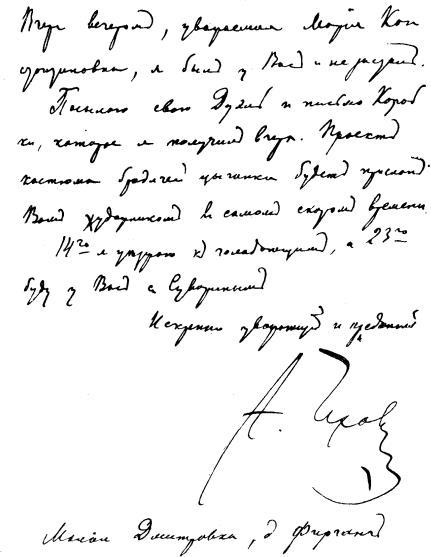 Вчера вечеромъ, уважаемая Марія Кон
стантиновна, я былъ у Васъ и не засталъ.
Посылаю свою Дуэль и письмо Короб
ки, которое я получилъ вчера. Проектъ
костюма бродячей цыганки будетъ присланъ
Вамъ художникомъ въ самомъ скоромъ времени.
14го я уѣзжаю къ голодающимъ, а 23го
буду у Васъ съ Суворинымъ
Искренно уважающій и преданный
А. Чеховъ
Малая Дмитровка, д Фирганъ